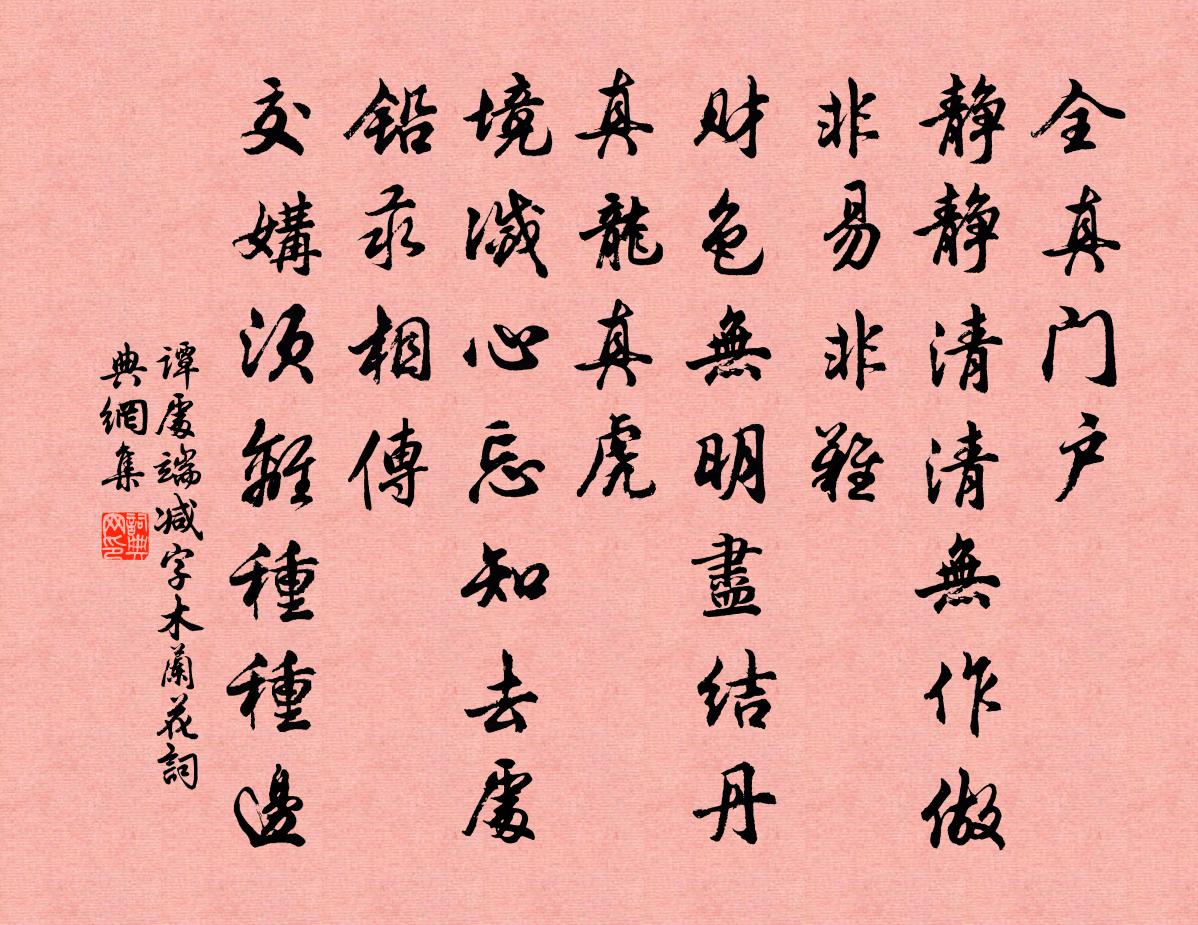 全真门户
静静清清無作做
非易非難
财色無明盡结丹
真龍真虎
境滅心忘知去處
铅汞相傳
交媾须離種種邊
谭處端减字木蘭花詞
典網集
詞典网印